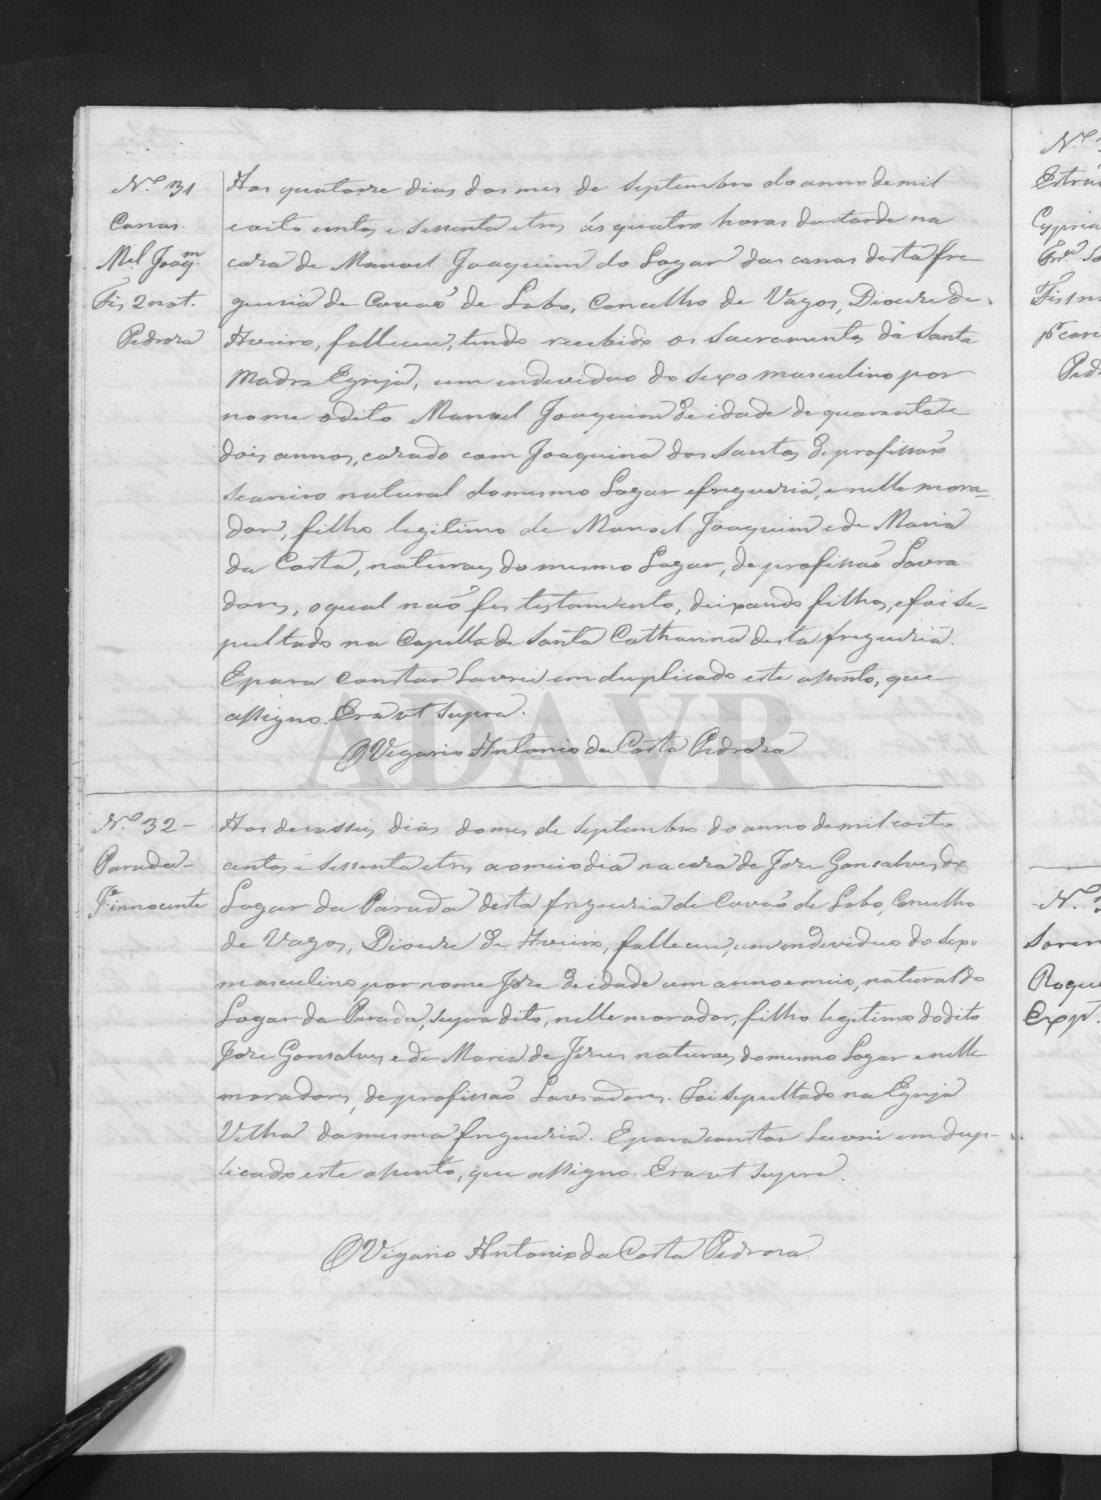 Nº 31
Canas.
Mel Joaqm.
Fes 2 not.
Pedroza
Aos quatorze dias dos mes de Septembro do anno de mil
e oito centos e sessenta e tres ás quatro horas da tarde na
caza de Manoel Joaquim do Lugar das canas desta fre
guezia de Covaõ de Lobo, Concelho de Vagos, Dioceze de
Aveiro, falleceu, tendo recebido os Sacramentos da Santa
Madre Egreja, um individuo do sexo masculino por
nome o dito Manoel Joaquim de idade de quarenta e
dois annos, cazado com Joaquina dos Santos de profissaõ
seareiro natural do mesmo Lugar e freguezia, e nelle mora=
dor, filho legitimo de Manoel Joaquim e de Maria
da Costa, naturaes do mesmo Lugar, de profissaõ Lavra
dores, o qual naõ fes testamento, deixando filhos, e foi se=
pultado na Capella de Santa Catharina desta freguezia.
E para constar Lavrei em duplicado este assento, que
assigno. Era ut supra.
O Vigario Antonio da Costa Pedroza
Nº 32 -
Parada -
Jº innocente
Aos dezasseis dias do mes de Septembro do anno de mil e oito
centos e sessenta e tres ao meio dia na caza de Joze Gonsalves, do
Lugar da Parada desta freguezia de Covaõ de Lobo, Concelho
de Vagos, Diocere de Aveiro, falleceu, um individuo do sexo
masculino por nome Joze de idade um anno e meio, natural do
Lugar da Parada, supra dito, nelle morador, filho legitimo do dito
Joze Gonsalves e de Maria de Jezus naturaes do mesmo Lugar e nelle
moradores, de profissaõ Lavradores. Foi sepultado na Egreja
Velha da mesma freguezia. E para constar Lavrei em dup-
licado este assento, que assigno. Era ut supra.
O Vigario Antonio da Costa Pedroza
ADAVR